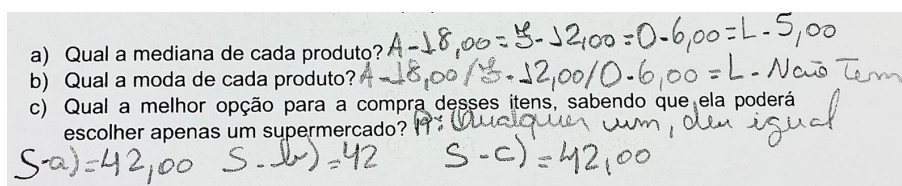 a) Qual a mediana de cada produto? A-18,00=F-12,00=O-6,00=L-5,00
b) Qual a moda de cada produto? A-18,00/F-12,00/O-6,00=L-Não Tem
c) Qual a melhor opção para a compra desses itens, sabendo que ela poderá
escolher apenas um supermercado? R: Qualquer um, deu igual
S-a)=42,00 S-b)=42 S-c)=42,00